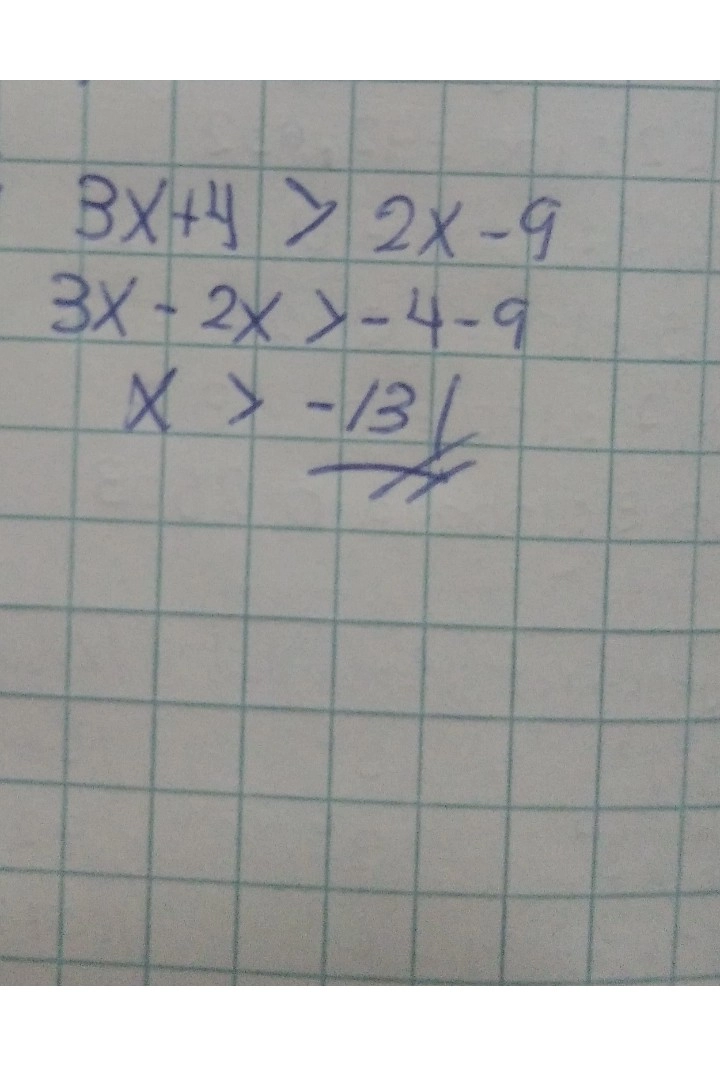 3x+4 > 2x-9
3x - 2x > -4-9
x > -13